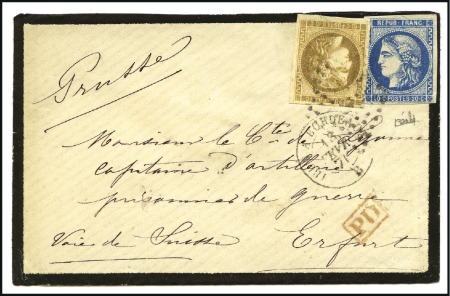 REPUB. FRANC.
30 C. POSTES 30 C.
20 C. POSTES 20 C.
Prusse
Monsieur le Cte de
capitaine d'artillerie
prisonnier de guerre
Voie de Suisse Erfurt
PD